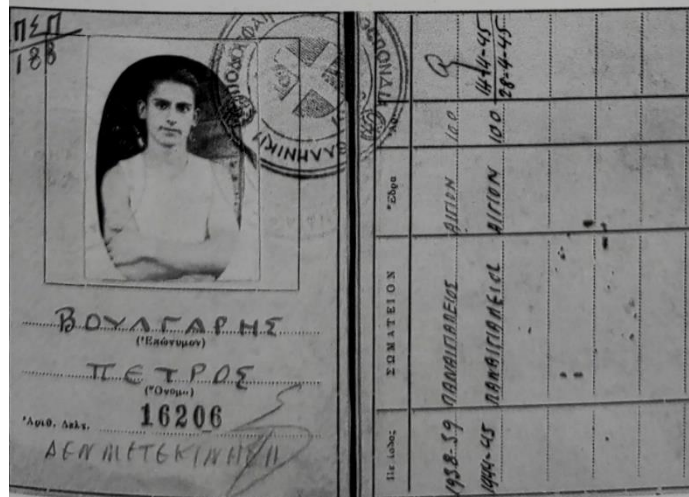 ΠΣΠ
188
ΒΟΥΛΓΑΡΗΣ
(Ἐπώνυμον)
ΠΕΤΡΟΣ
(Ὄνομα)
Ἀριθ. Δελτ. 16206
ΔΕΝ ΜΕΤΕΚΙΝΗΘΗ
ΕΛΛΗΝΙΚΗ
Περίοδος
ΣΩΜΑΤΕΙΟΝ
Ἕδρα
1938-39 ΠΑΝΑΙΓΙΑΛΕΙΟΣ ΑΙΓΙΟΝ 100
1944-45 ΠΑΝΑΙΓΙΑΛΕΙΟΣ ΑΙΓΙΟΝ 100 14-4-45
28-4-45